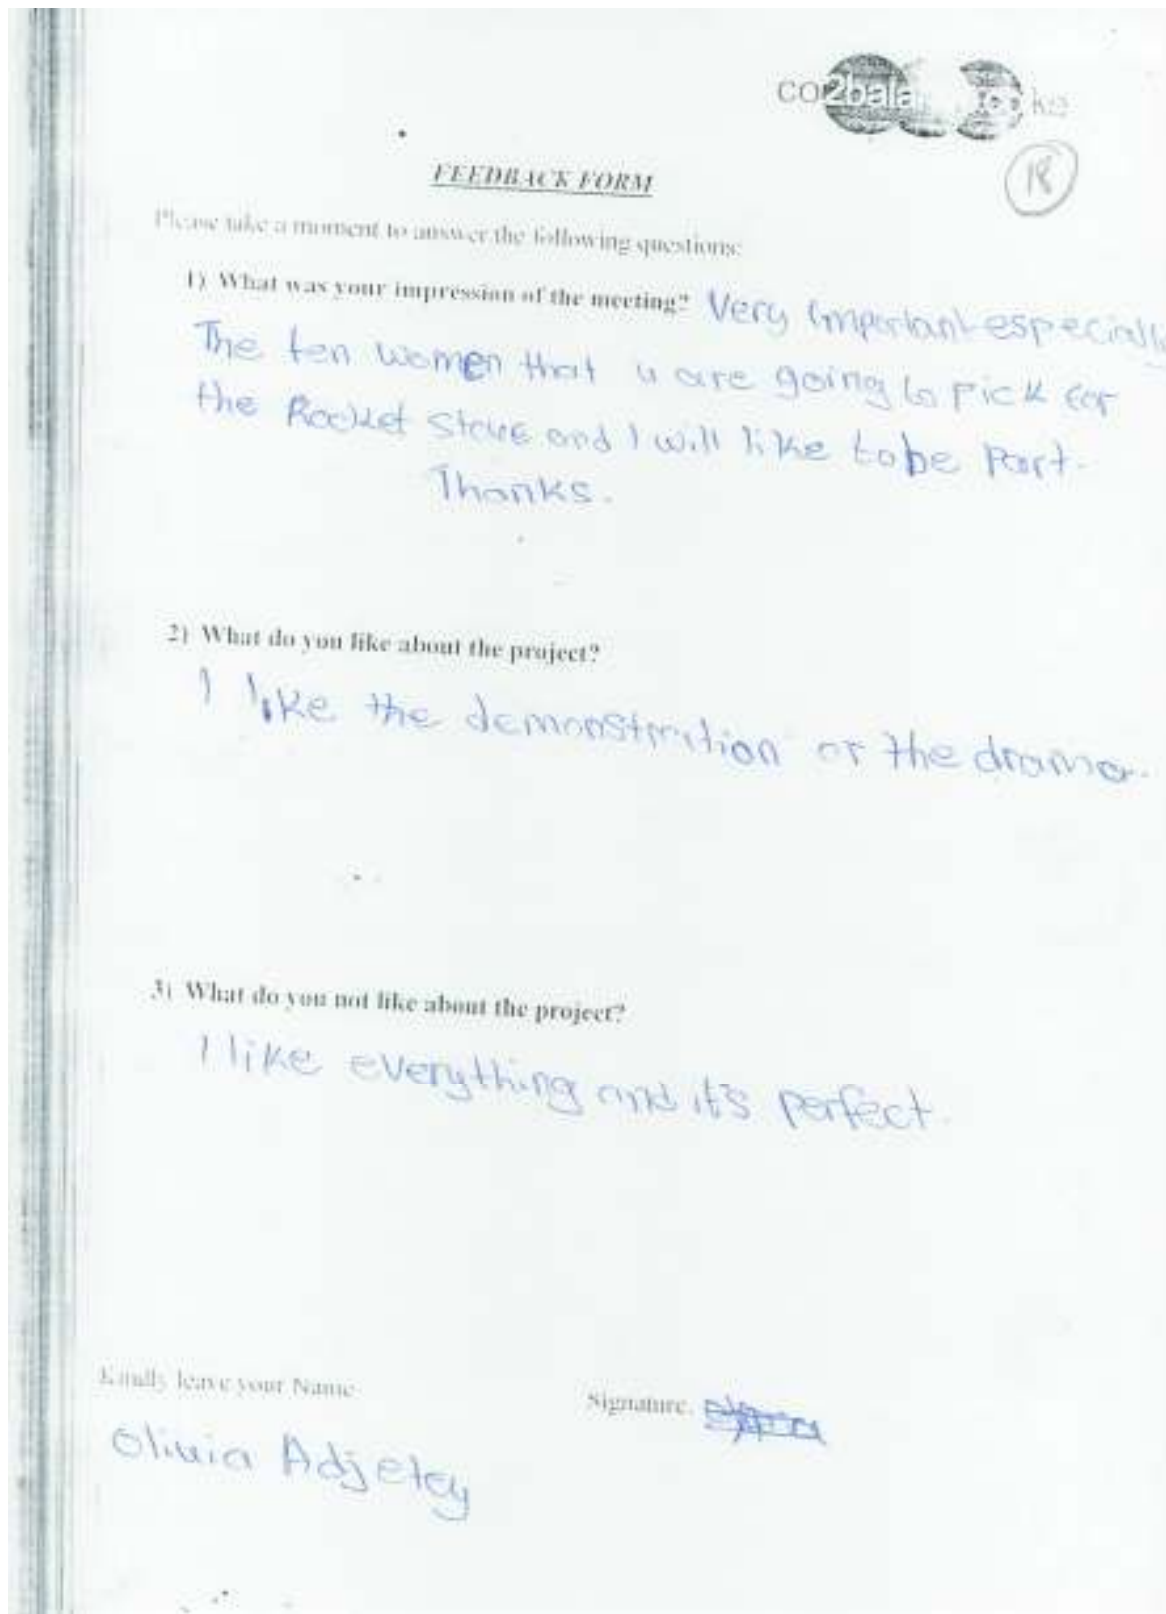 co2bala
18
FEEDBACK FORM
Please take a moment to answer the following questions:
1) What was your impression of the meeting? Very important especially
The ten women that u are going to pick for
the Rocket Stove and I will like to be part.
Thanks.
2) What do you like about the project?
I like the demonstration or the drama.
3) What do you not like about the project?
I like everything and it's perfect.
Kindly leave your Name
Signature.
Olivia Adjetey